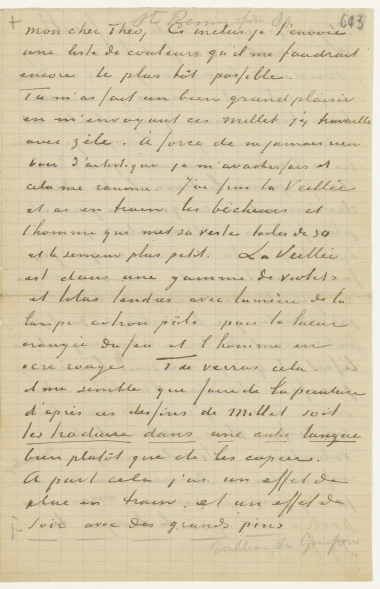 613
mon cher Theo, Ci inclus je t'envoie
une liste de couleurs qu'il me faudrait
encore le plus tôt possible.
Tu m'as fait un bien grand plaisir
en m'envoyant ces Millet j'y travaille
avec zèle. À force de ne jamais rien
voir d'artistique je m'avachissais et
cela me ranime. J'ai fini la Veillée
et ai en train les bêcheurs et
l'homme qui met sa veste toiles de 30
et le semeur plus petit. La Veillée
est dans une gamme de violets
et lilas tendres avec lumière de la
lampe citron pâle puis la lueur
orangée du feu et l'homme en
ocre rouge Tu verras cela
il me semble que faire de la peinture
d'après ces dessins de Millet soit
les traduire dans une autre langue
bien plutôt que de les copier.
A part cela j'ai un effet de
pluie en train et un effet de
soir avec des grands pins